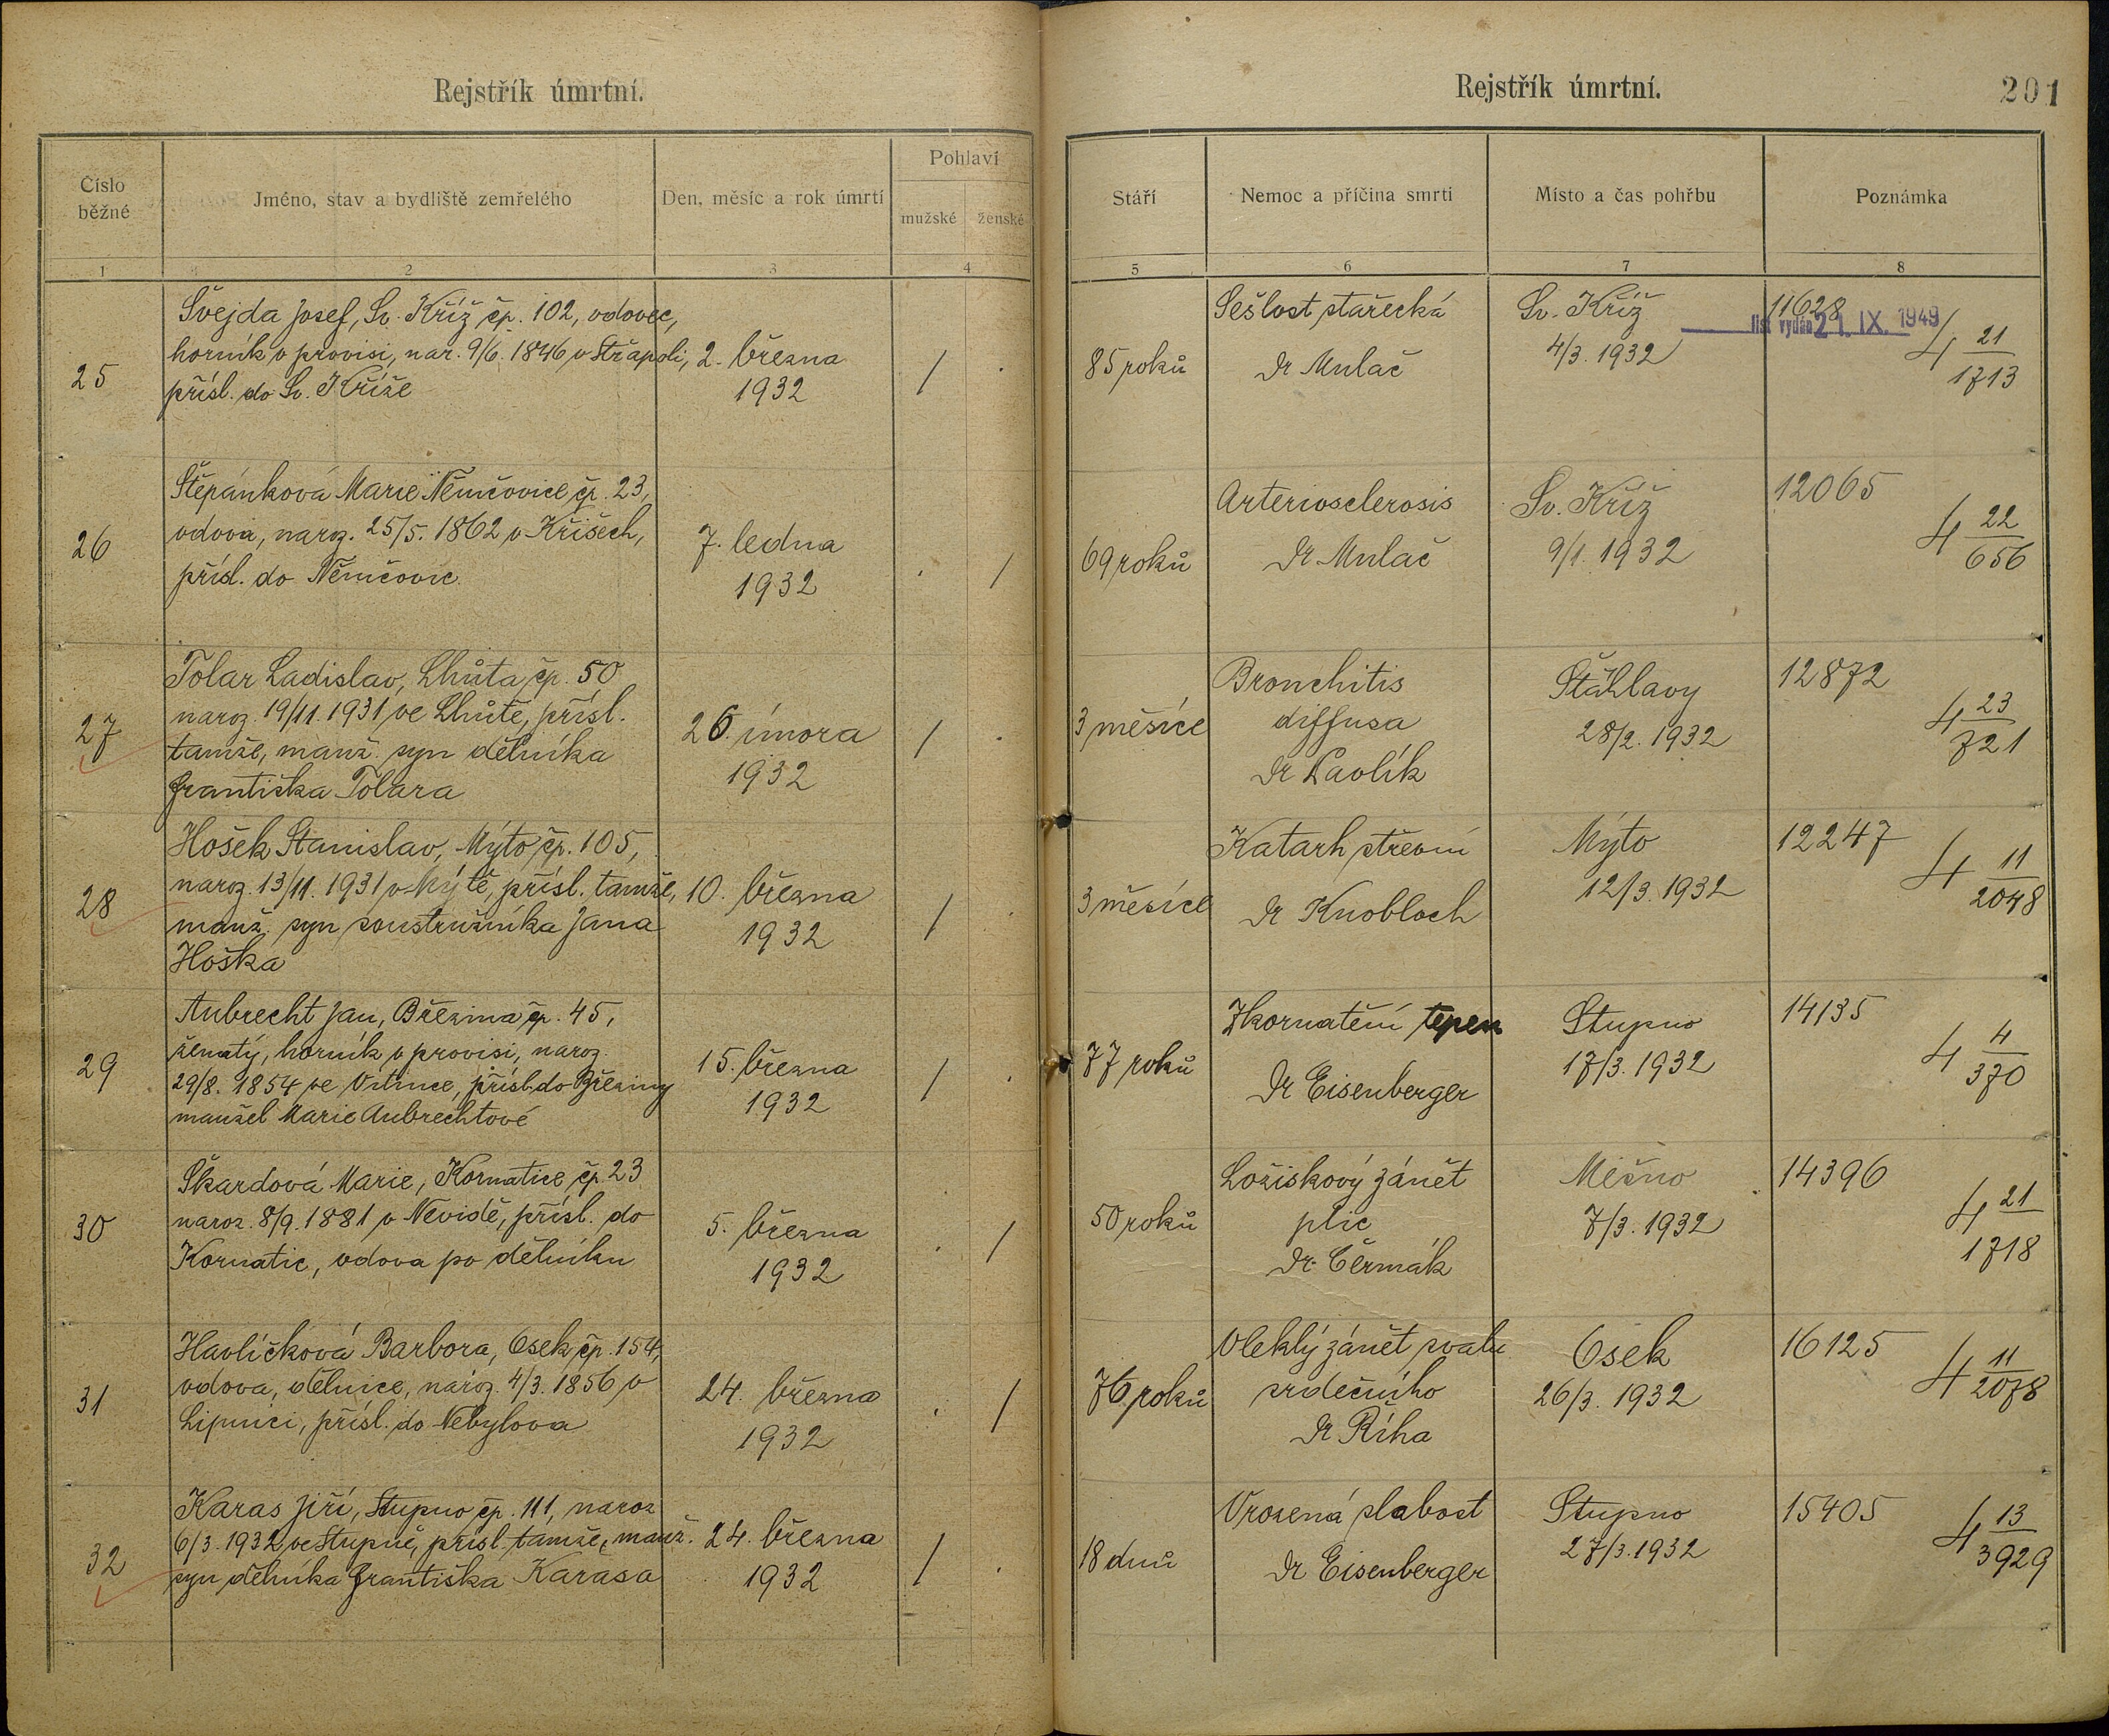 Rejstřík úmrtní.
Číslo běžné
Jméno, stav a bydliště zemřelého
Den, měsíc a rok úmrtí
Pohlaví
mužské
ženské
1
2
3
4
25
Švejda Josef, Sv. Kříž čp. 102, vdovec,
horník v provisi, nar. 9/6. 1846 v Střapoli,
přísl. do Sv. Kříže
2. března
1932
/
.
26
Štěpánková Marie Němčovice čp. 23,
vdova, naroz. 25/5. 1862 v Křišech,
přísl. do Němčovic.
7. ledna
1932
.
/
27
Tolar Ladislav, Lhůta čp. 50
naroz. 19/11. 1931 ve Lhůtě, přísl.
tamže, manž. syn dělníka
Františka Tolara
26. února
1932
/
.
28
Hošek Stanislav, Mýto čp. 105,
naroz. 13/11. 1931 v Mýtě, přísl. tamže,
manž. syn soustružníka Jana
Hoška
10. března
1932
/
.
29
Aubrecht Jan, Březina čp. 45,
ženatý, horník v provisi, naroz.
29/8. 1854 ve Vitince, přísl. do Březiny
manžel Marie Aubrechtové
15. března
1932
/
.
30
Škardová Marie, Kornatice čp. 23
naroz. 8/9. 1881 v Nevidě, přísl. do
Kornatic, vdova po dělníku
5. března
1932
.
/
31
Havlíčková Barbora, Osek čp. 154,
vdova, dělnice, naroz. 4/3. 1856 v
Lipnici, přísl. do Nebylova
24. března
1932
.
/
32
Karas Jiří, Stupno čp. 111, naroz
6/3. 1932 ve Stupně, přísl. tamže, manž.
syn dělníka Františka Karasa
24. března
1932
/
.
Rejstřík úmrtní.
201
Stáří
Nemoc a příčina smrti
Místo a čas pohřbu
Poznámka
5
6
7
8
85 roků
Sešlost stařecká
Dr Mulač
Sv. Kříž
4/3. 1932
11628
list vydán 21. IX. 1949
4 21/1713
69 roků
Arteriosclerosis
Dr Mulač
Sv. Kříž
9/1. 1932
12065
4 22/656
3 měsíce
Bronchitis
diffusa
Dr Pavlík
Štáhlavy
28/2. 1932
12872
4 23/721
3 měsíce
Katarh střevní
Dr Knobloch
Mýto
12/3. 1932
12247
4 11/2048
77 roků
Zkornatění tepen
Dr Eisenberger
Stupno
17/3. 1932
14135
4 4/370
50 roků
Ložiskový zánět
plic
Dr. Čermák
Mešno
7/3. 1932
14396
4 21/1718
76 roků
Vleklý zánět svalu
srdečního
Dr Říha
Osek
26/3. 1932
16125
4 11/2078
18 dnů
Vrozená slabost
Dr Eisenberger
Stupno
27/3. 1932
15405
4 13/3929